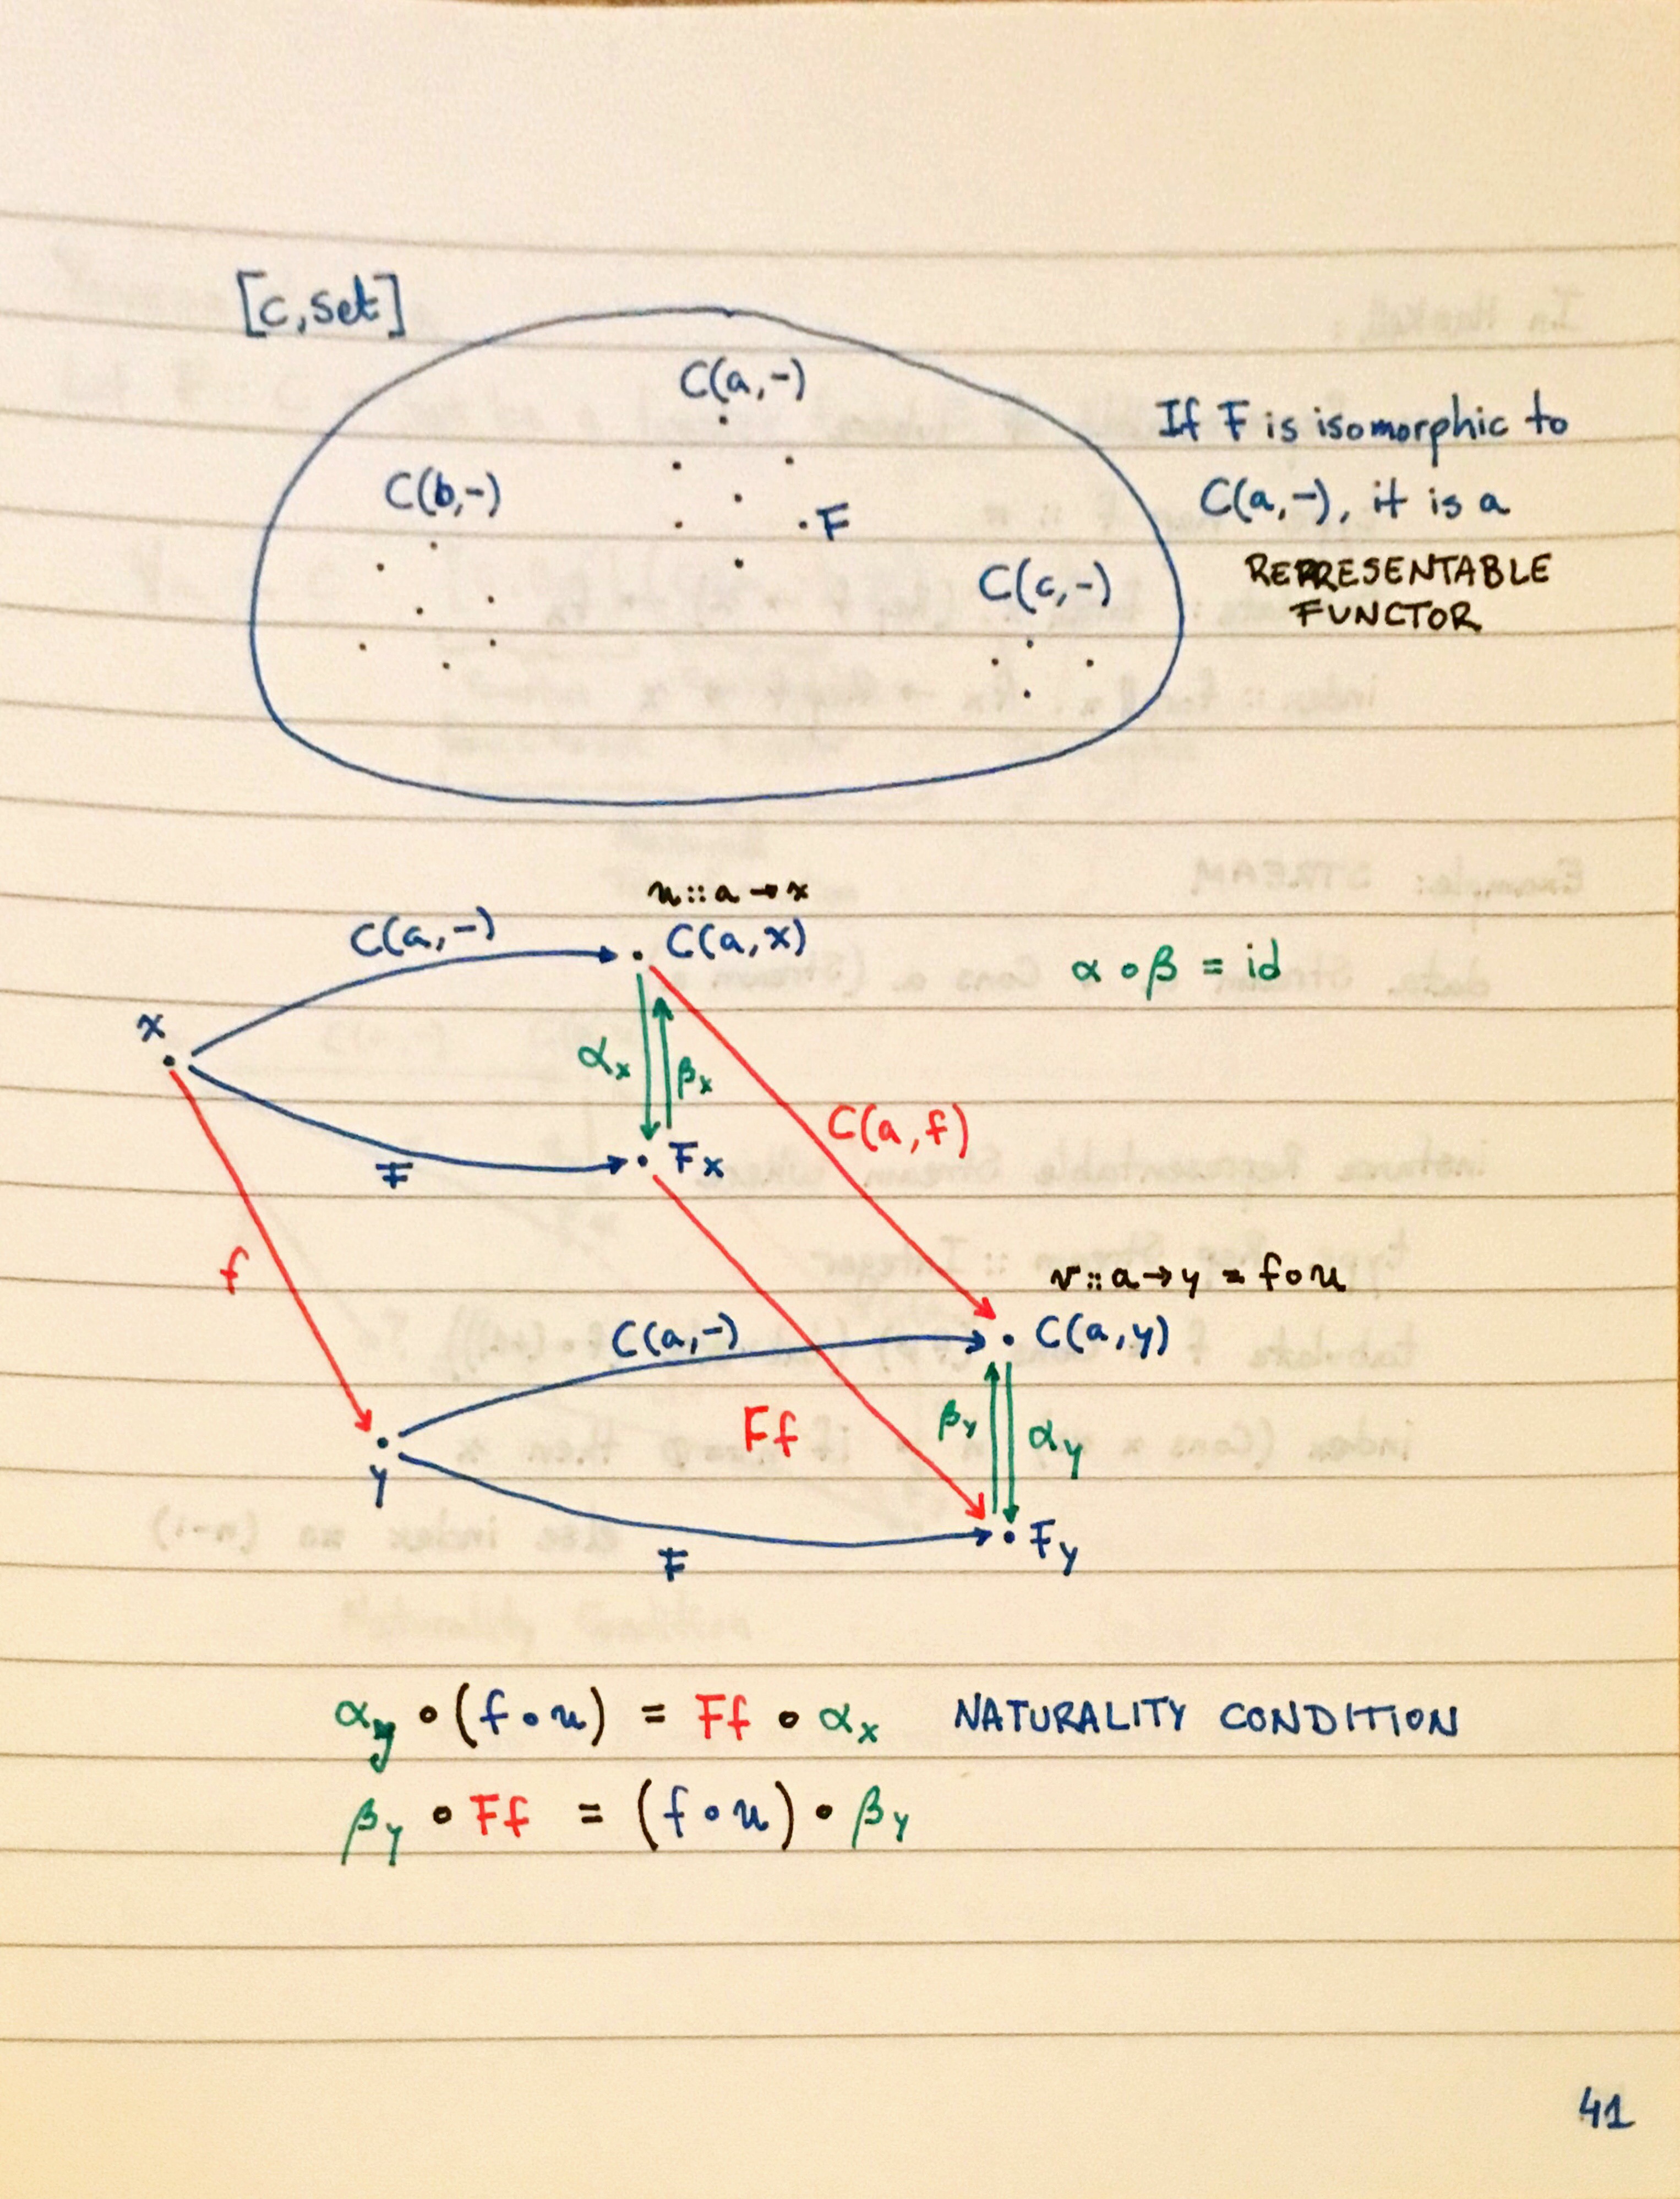 [C, Set]
C(a,-)
C(b,-)
F
C(c,-)
If F is isomorphic to
C(a,-), it is a
REPRESENTABLE
FUNCTOR
u :: a → x
C(a,-)
C(a,x)
α ∘ β = id
x
αx
βx
C(a,f)
F
Fx
f
v :: a → y = f ∘ u
C(a,-)
C(a,y)
Ff
βy
αy
y
F
Fy
αy ∘ (f ∘ u) = Ff ∘ αx NATURALITY CONDITION
βy ∘ Ff = (f ∘ u) ∘ βy
41